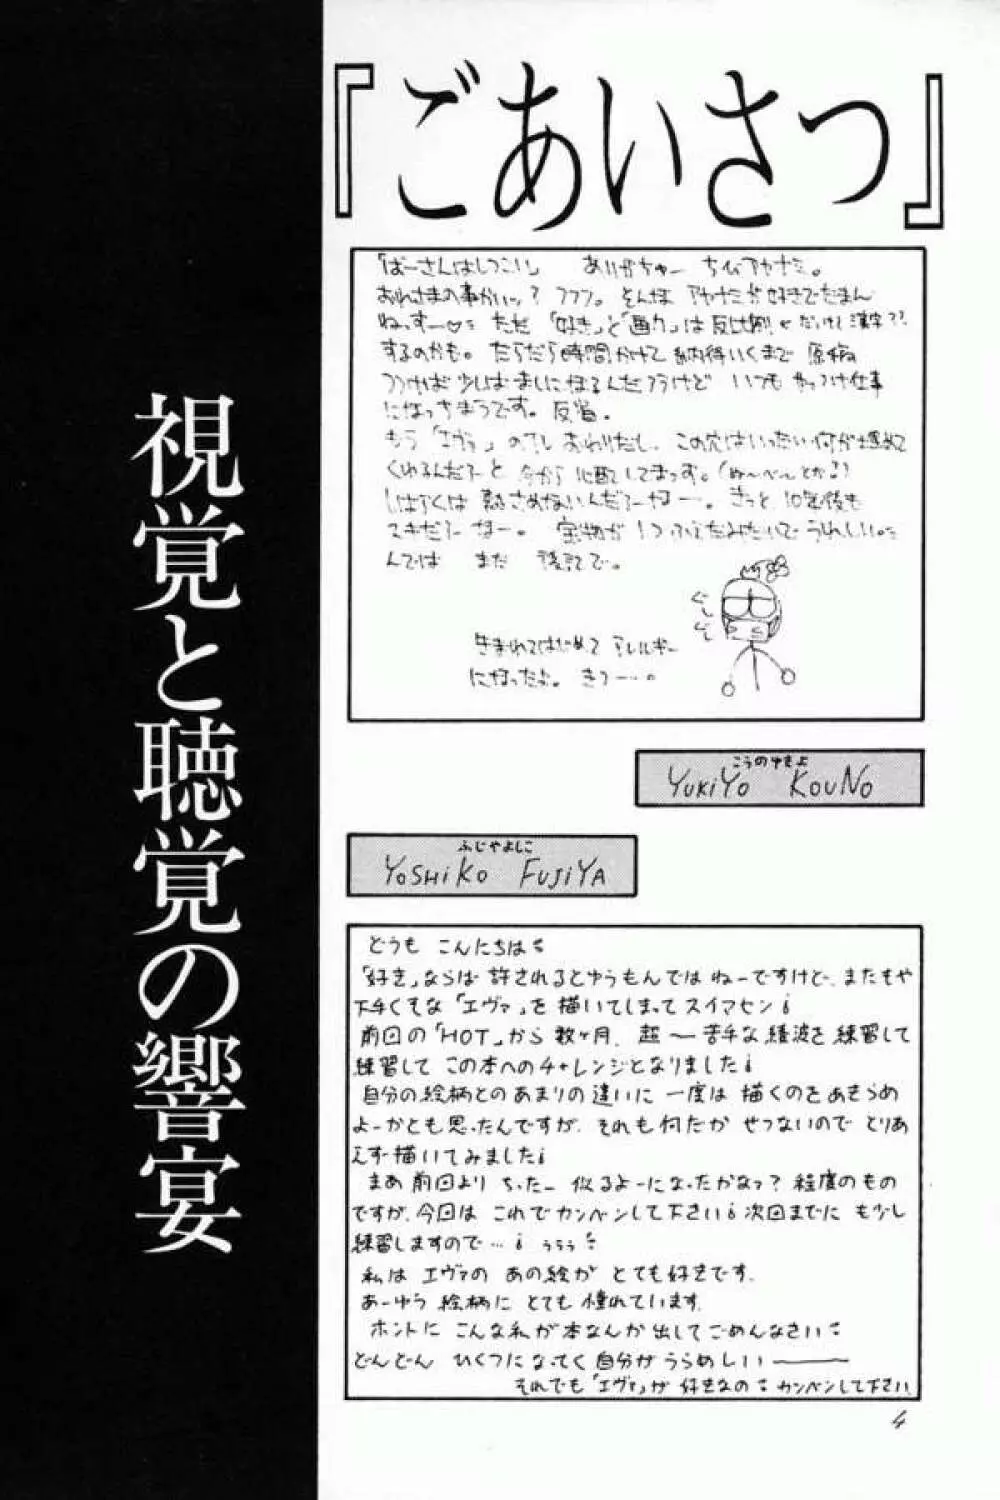 『ごあいさつ』
視覚と聴覚の響宴
「ばーさんはしつこい」 ありがちゅー ちびアヤナミ。
おれさまの事かいッ? フフフ。そんな アヤナミが好きでたまん
ねっすー♡ ただ「好き」と「画力」は反比例 ←だいけし漢字??
するのかも。だらだら時間かけて 納得いくまで 原稿
つづければ 少しはましになるんだろうけど いつも やっつけ仕事
になっちまうです。反省。
もう「エヴァ」のTV おわりだし、この穴はいったい何が埋めて
くれるんだろーと 今から 心配してまっす。(ぬ〜べ〜とか?)
しばらくは 熱さめないんだろーなー…。きっと 10年後も
スキだろーなー。 宝物が 1つふえたみたいで うれしい。
んでは また 後記で。
生まれてはじめて アレルギー
になったよ。きつー…。
こうのゆきよ
YUKIYO KOUNO
ふじやよしこ
YOSHIKO FUJIYA
どうも こんにちは
「好き」ならば 許されるとゆうもんでは ねーですけど、またもや
下手くそな「エヴァ」を 描いてしまって スイマセン!
前回の「HOT」から 数ヶ月、超〜苦手な 綾波を 練習して
練習して この本へのチャレンジとなりました!
自分の絵柄とのあまりの違いに 一度は 描くのをあきらめ
よーかとも 思ったんですが、それも何だか せつないので とりあ
えず描いてみました!
まあ 前回より ちったー 似るよーになったかなッ? 程度のもの
ですが、今回は これでカンベンして下さい! 次回までに もう少し
練習しますので…! ううう
私は エヴァの あの絵が とても好きです。
あーゆう 絵柄に とても 憧れています。
ホントに こんな私が本なんか 出してごめんなさい
どんどん ひくつになってく 自分がうらめしい———
それでも「エヴァ」が 好きなの カンベンして下さい。
4